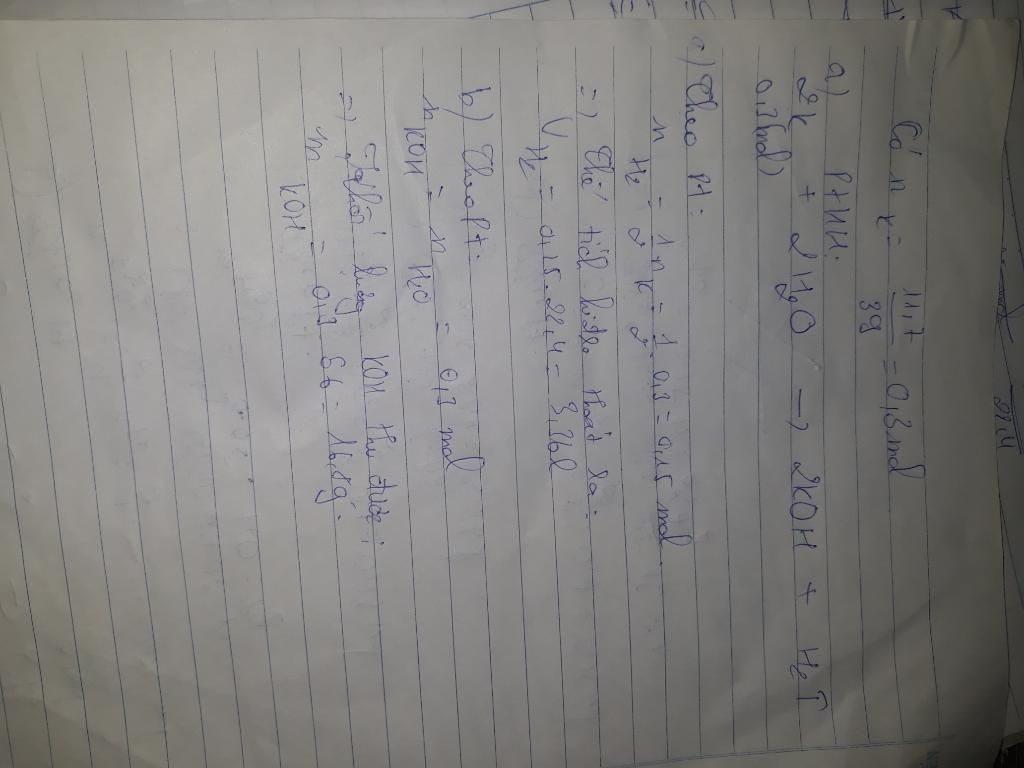 Có n K = 11,7 / 39 = 0,3 mol
a) PTHH:
2K + 2H₂O → 2KOH + H₂↑
0,3 (mol)
c) Theo Pt:
n H₂ = 1/2 n K = 1/2 0,3 = 0,15 mol
=) Thể tích hidro thoát là:
V H₂ = 0,15.22,4 = 3,36l
b) Theo pt:
n KOH = n H₂O = 0,3 mol
=) khối lượng KOH thu được:
m KOH = 0,3 56 = 16,8g.
22,4